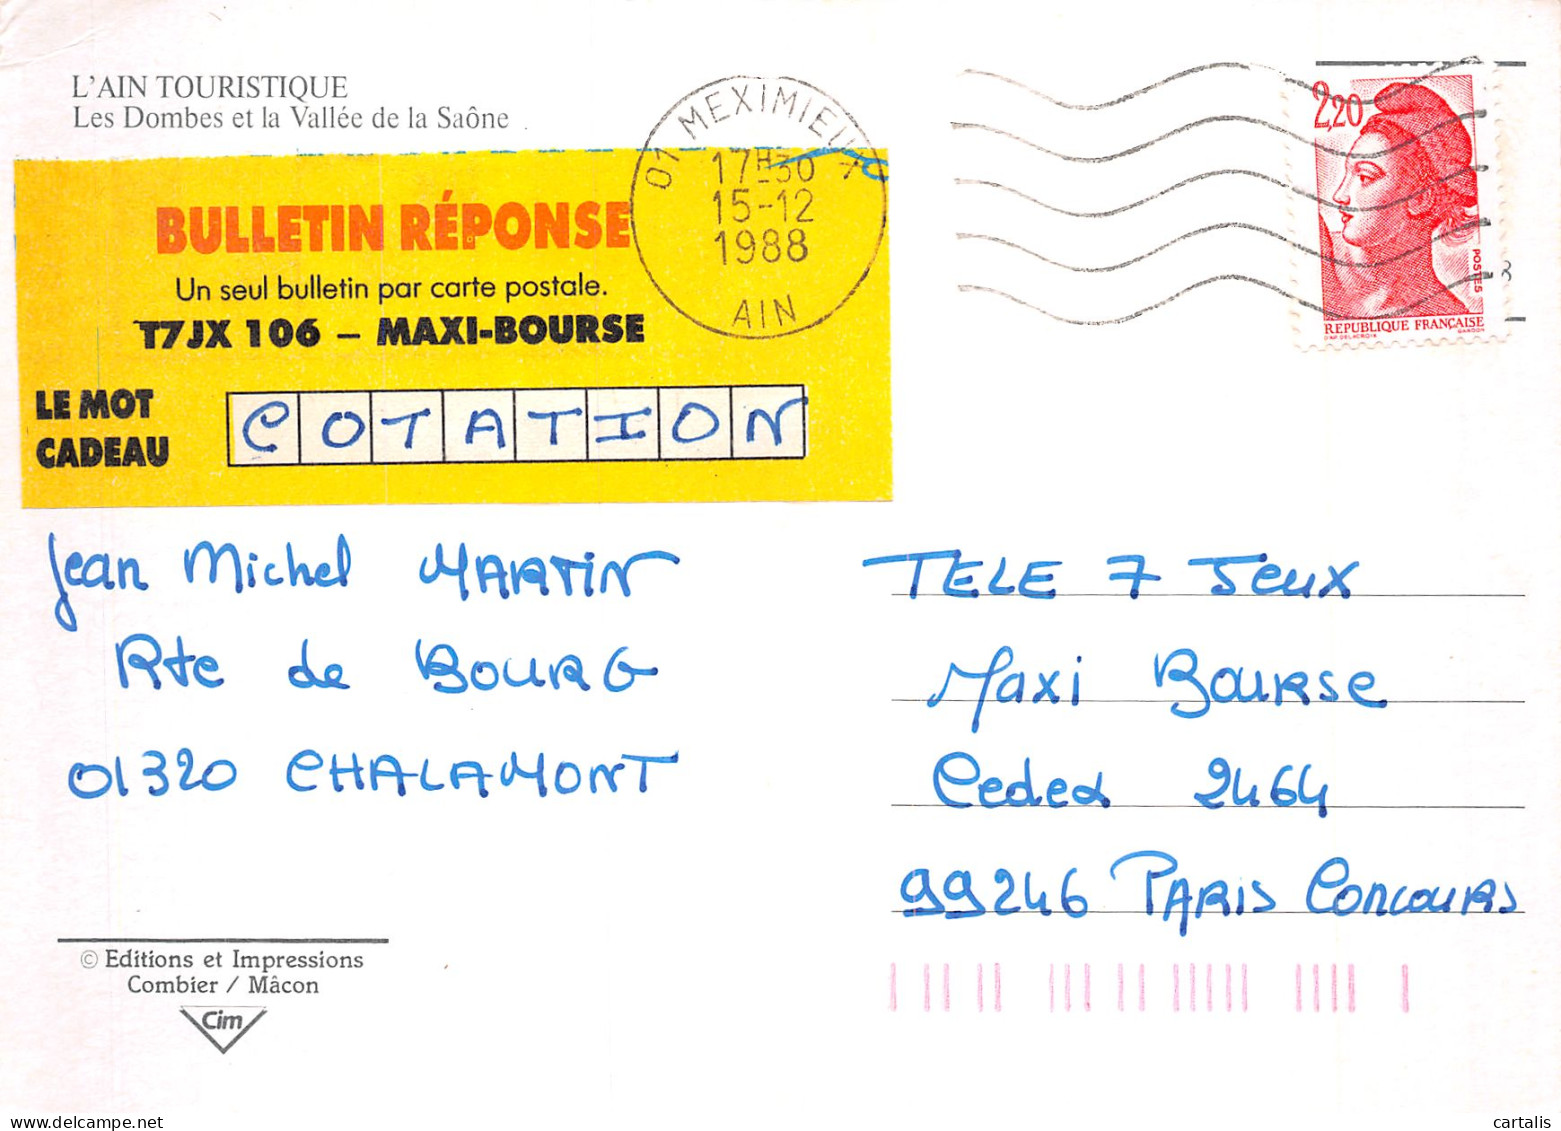 L'AIN TOURISTIQUE
Les Dombes et la Vallée de la Saône
BULLETIN RÉPONSE
Un seul bulletin par carte postale.
T7JX 106 – MAXI-BOURSE
LE MOT
CADEAU
COTATION
01 MEXIMIEUX
17H30
15-12
1988
AIN
2,20
POSTES
REPUBLIQUE FRANÇAISE
GANDON
D'AP. DELACROIX
8
Jean Michel MARTIN
Rte de BOURG
01320 CHALAMONT
TELE 7 Jeux
Maxi Bourse
Cedex 2464
99246 PARIS Concours
© Editions et Impressions
Combier / Mâcon
Cim
cartalis